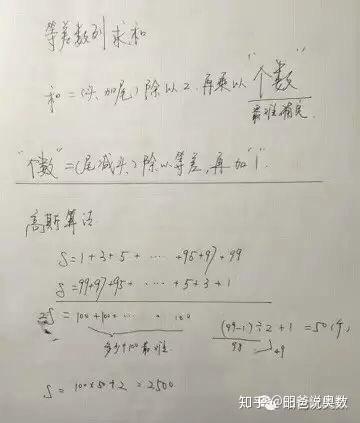 等差数列求和
和=(头加尾)除以2,再乘以"个数"
最难搞定.
"个数"=(尾减头)除以等差,再加"1".
高斯算法
S=1+3+5+……+95+97+99
S=99+97+95+……+5+3+1
2S=100+100+……+100
多少个100最难
(99-1)÷2+1=50(个)
98
49
S=100×50÷2=2500
知乎 @昍爸说奥数